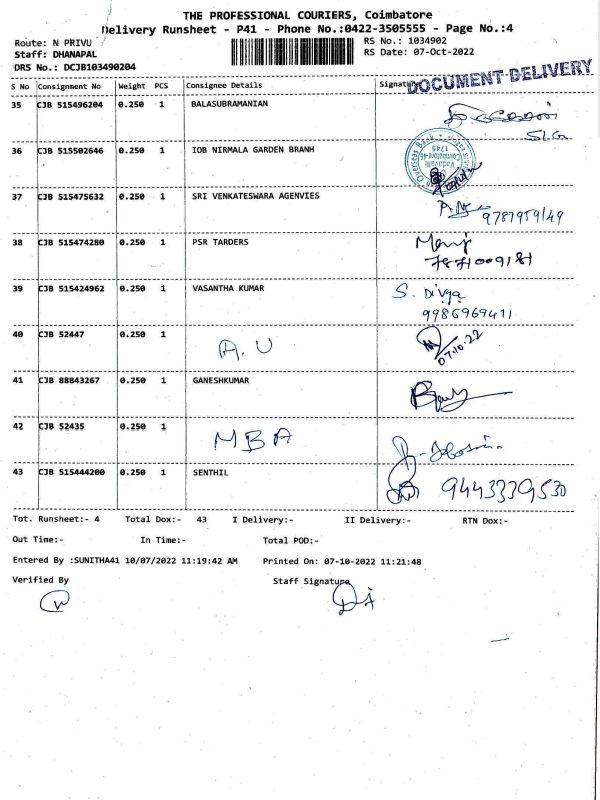 THE PROFESSIONAL COURIERS, Coimbatore
Delivery Runsheet - P41 - Phone No.:0422-3505555 - Page No.:4
Route: N PRIVU
RS No.: 1034902
Staff: DHANAPAL
RS Date: 07-Oct-2022
DRS No.: DCJB103490204
DOCUMENT DELIVERY
S No Consignment No Weight PCS Consignee Details
35 CJB 515496204 0.250 1 BALASUBRAMANIAN
36 CJB 515502646 0.250 1 IOB NIRMALA GARDEN BRANH
37 CJB 515475632 0.250 1 SRI VENKATESWARA AGENVIES
9787959149
38 CJB 515474280 0.250 1 PSR TARDERS
7871009181
39 CJB 515424962 0.250 1 VASANTHA KUMAR S. Divya
9986969411
40 CJB 52447 0.250 1 A.U
07.10.22
41 CJB 88843267 0.250 1 GANESHKUMAR
42 CJB 52435 0.250 1 MBA
43 CJB 515444200 0.250 1 SENTHIL 9443339530
Tot. Runsheet:- 4 Total Dox:- 43 I Delivery:- II Delivery:- RTN Dox:-
Out Time:- In Time:- Total POD:-
Entered By :SUNITHA41 10/07/2022 11:19:42 AM Printed On: 07-10-2022 11:21:48
Verified By Staff Signature